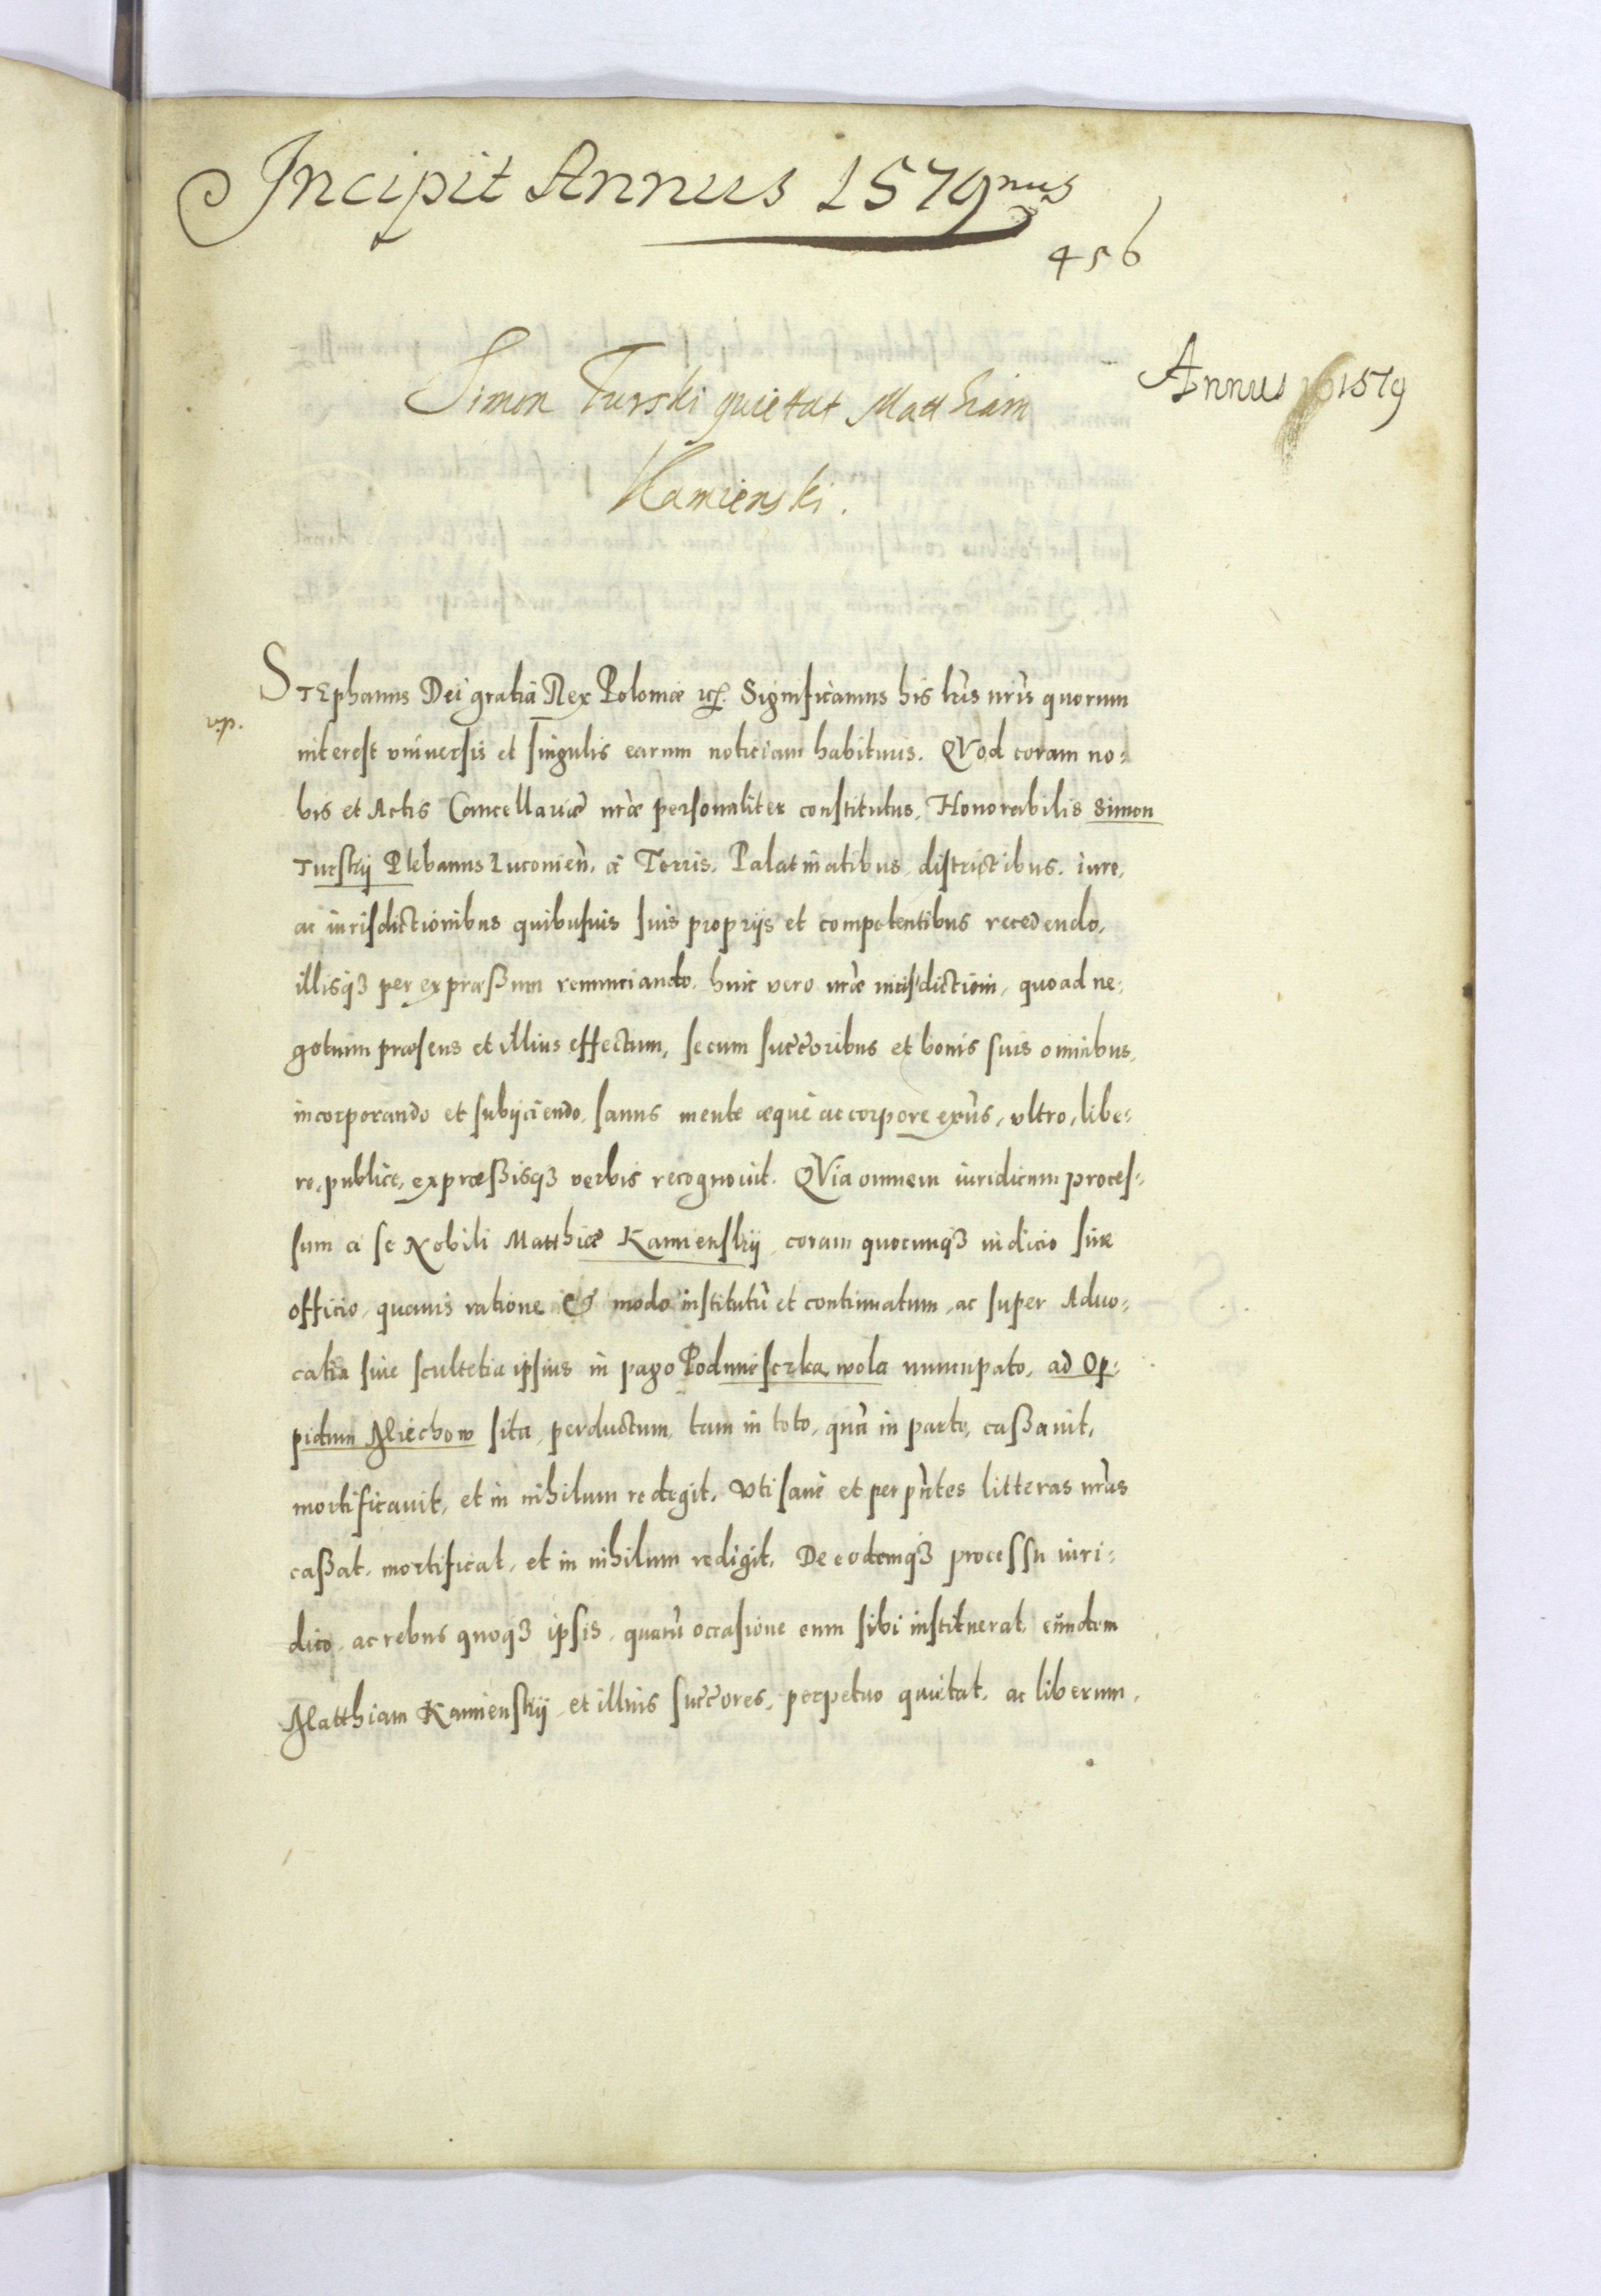 Incipit Annus 1579nus
456
Annus 1579
Simon Turski quietat Matthiam
Kamienski.
STEphanus Dei gratia Rex Poloniæ etc. Significamus his lr̃is nr̃is quorum
v.p.
interest vniuersis et singulis earum noticiam habituris. QVod coram no-
bis et Actis Cancellariæ nr̃æ personaliter constitutus, Honorabilis Simon
Turskÿ Plebanus Luconien̄. à Terris, Palatinatibus, districtibus, iure,
ac iurisdictionibus quibusuis suis proprijs et competentibus recedendo,
illisqȝ per expræßum renunciando, huic vero nr̃æ iurisdictioni, quoad ne-
gotium præsens et illius effectum, se cum succ̃oribus et bonis suis omnibus,
incorporando et subijciendo, sanus mente æquè ac corpore exñs, vltro, libe-
re, publice, expræßisqȝ verbis recognouit. QVia omnem iuridicum proces-
sum à se Nobili Matthiæ Kamienskÿ, coram quocunqȝ iudicio siue
officio, quauis ratione & modo institutũ et continuatum, ac super Aduo-
catia siue scultetia ipsius in pago Podmieiserka wola nuncupato, ad Op-
pidum Miechow sita, perductum, tam in toto, quã in parte, caßauit,
mortificauit, et in nihilum redegit, Vti sanè et per pñtes litteras nr̃as
caßat, mortificat, et in nihilum redigit, De eodemqȝ processu iuri-
dico, ac rebus quoqȝ ipsis, quarũ occasione eum sibi instituerat, eundem
Matthiam Kamienskÿ, et illius succ̃ores, perpetuo quietat, ac liberum,